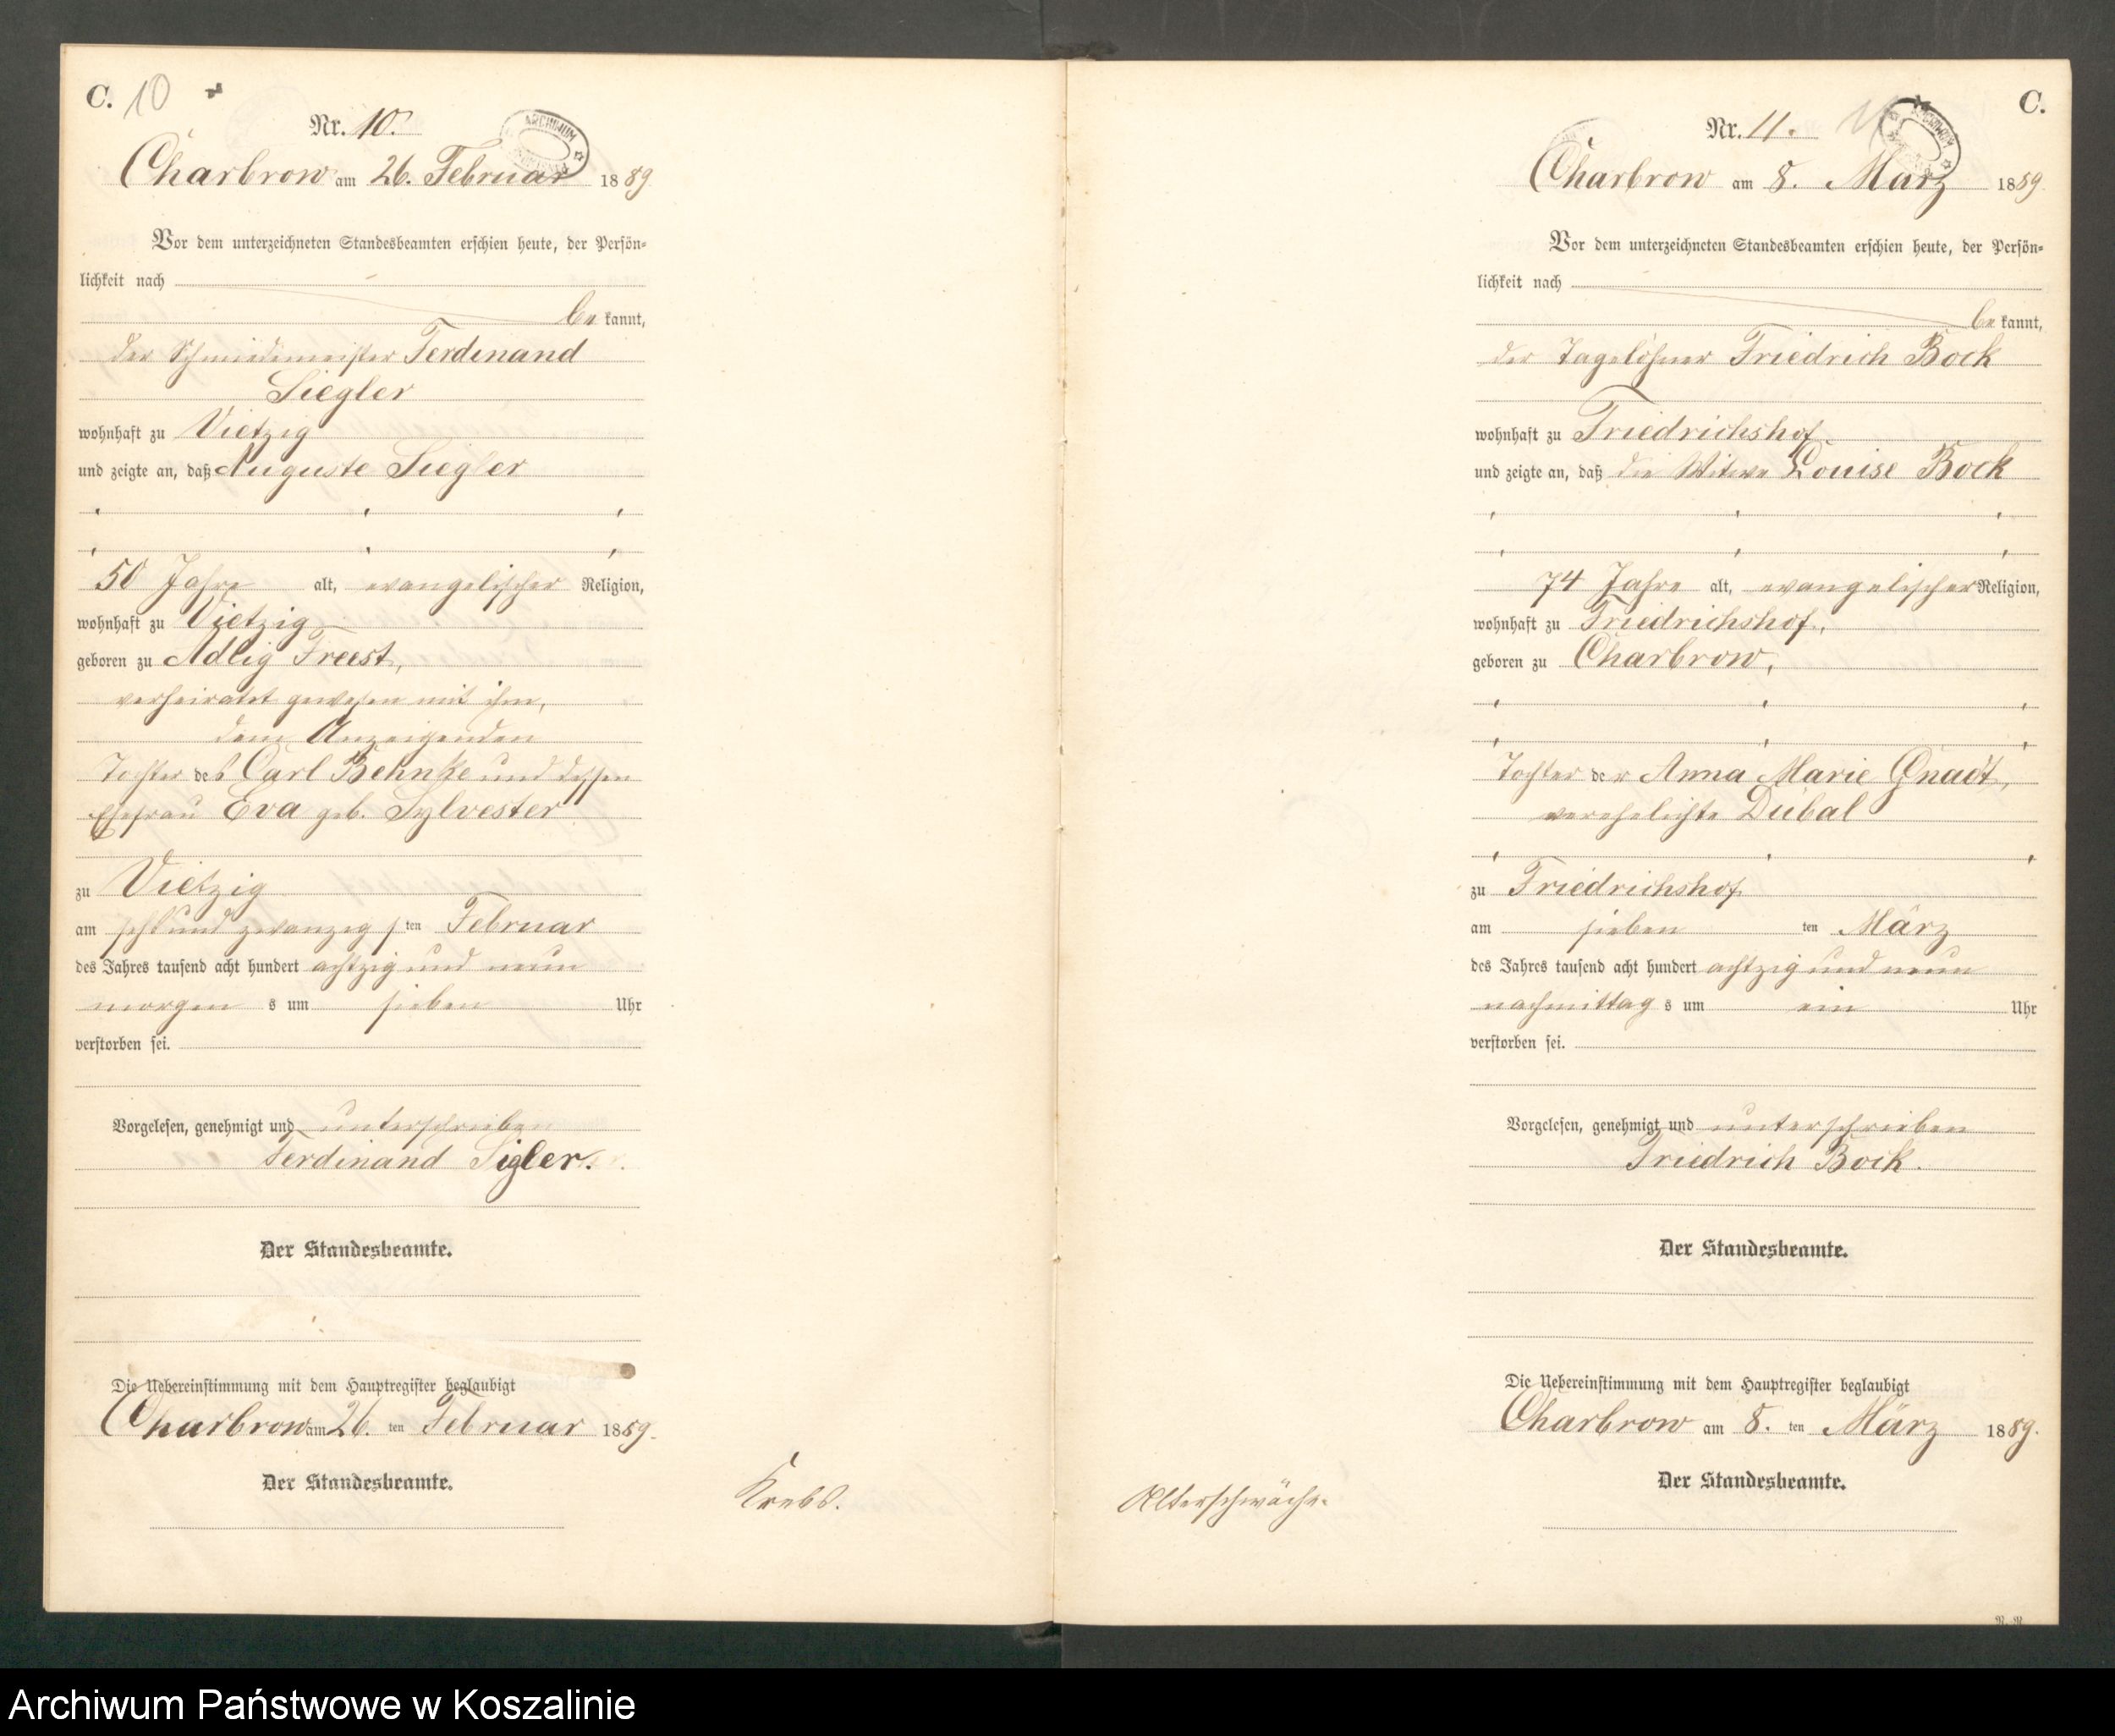 C. 10
Nr. 10.
ARCHIWUM
Charbrow am 26. Februar 1889
Vor dem unterzeichneten Standesbeamten erschien heute, der Persön=
lichkeit nach
be kannt,
der Schmiedemeister Ferdinand
Siegler
wohnhaft zu Vietzig
und zeigte an, daß Auguste Siegler
50 Jahre alt, evangelischer Religion,
wohnhaft zu Vietzig
geboren zu Adlig Freest,
verheiratet gewesen mit ihm,
dem Anzeigenden
Tochter des Carl Behnke und dessen
Ehefrau Eva geb. Sylvester
zu Vietzig
am sechs und zwanzigsten Februar
des Jahres tausend acht hundert achtzig und neun
morgen s um sieben Uhr
verstorben sei.
Vorgelesen, genehmigt und unterschrieben
Ferdinand Sigler.
Der Standesbeamte.
Die Uebereinstimmung mit dem Hauptregister beglaubigt
Charbrow am 26. ten Februar 1889.
Der Standesbeamte.
Krebs.
C.
Nr. 11. 11
Charbrow am 8. März 1889
Vor dem unterzeichneten Standesbeamten erschien heute, der Persön=
lichkeit nach
be kannt,
der Tagelöhner Friedrich Bock
wohnhaft zu Friedrichshof
und zeigte an, daß die Witwe Louise Bock
74 Jahre alt, evangelischer Religion,
wohnhaft zu Friedrichshof,
geboren zu Charbrow,
Tochter der Anna Marie Gnadt,
verehelichte Dubal
zu Friedrichshof
am sieben ten März
des Jahres tausend acht hundert achtzig und neun
nachmittag s um ein Uhr
verstorben sei.
Vorgelesen, genehmigt und unterschrieben
Friedrich Bock.
Der Standesbeamte.
Die Uebereinstimmung mit dem Hauptregister beglaubigt
Charbrow am 8. ten März 1889.
Der Standesbeamte.
Alterschwäche.
Archiwum Państwowe w Koszalinie